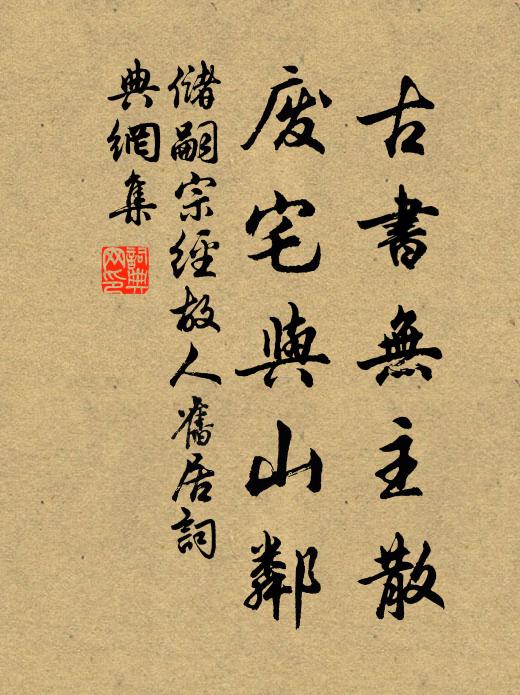 古書無主散
廃宅與山鄰
儲嗣宗經故人舊居詞
典網集
詞典網印